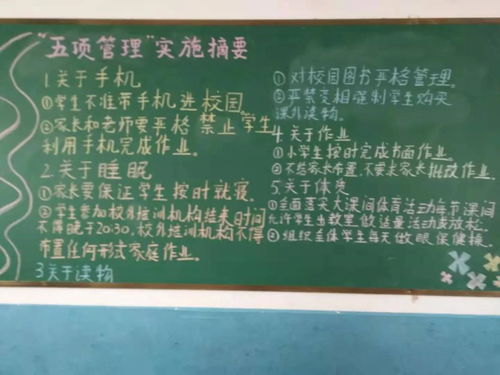 “五项管理”实施摘要
1.关于手机
①学生不准带手机进校园。
②家长和老师要严格禁止学生
利用手机完成作业。
2.关于睡眠
①家长要保证学生按时就寝.
②学生参加校外培训机构结束时间
不得晚于20:30,校外培训机构不得
布置任何形式家庭作业。
3关于读物
①对校园图书严格管理。
②严禁变相强制学生购买
课外读物。
4.关于作业
①小学生按时完成书面作业。
②不给家长布置,不要求家长批改作业。
5.关于体质
①全面落实大课间体育活动每节课间
允许学生出教室做适量活动或放松.
②组织全体学生每天做眼保健操.